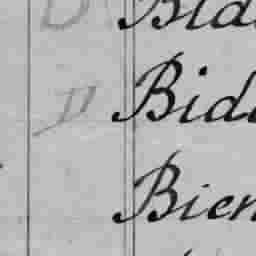 D Bid
D Bid
Bien